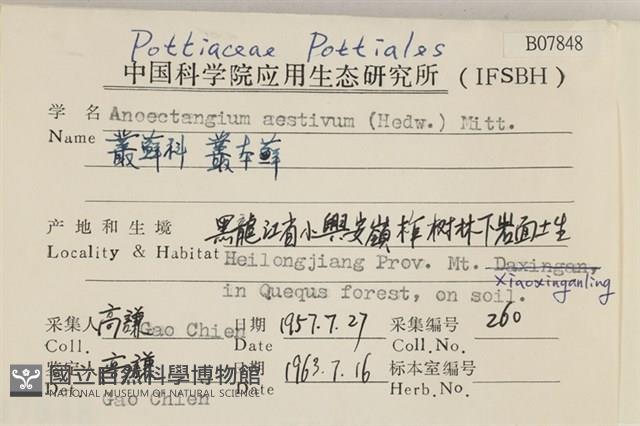 Pottiaceae Pottiales B07848
中国科学院应用生态研究所 (IFSBH)
学名 Anoectangium aestivum (Hedw.) Mitt.
Name 叢蘚科 叢本蘚
产地和生境 黑龍江省小興安嶺柞树林下岩面土生
Locality & Habitat Heilongjiang Prov. Mt. Daxingan,
Xiaoxinganling
in Quequs forest, on soil.
采集人 高謙 日期 1957.7.27 采集编号 260
Coll. Gao Chien Date Coll.No.
鉴定人 高謙 日期 1963.7.16 标本室编号
Det. Gao Chien Date Herb.No.
國立自然科學博物館
NATIONAL MUSEUM OF NATURAL SCIENCE